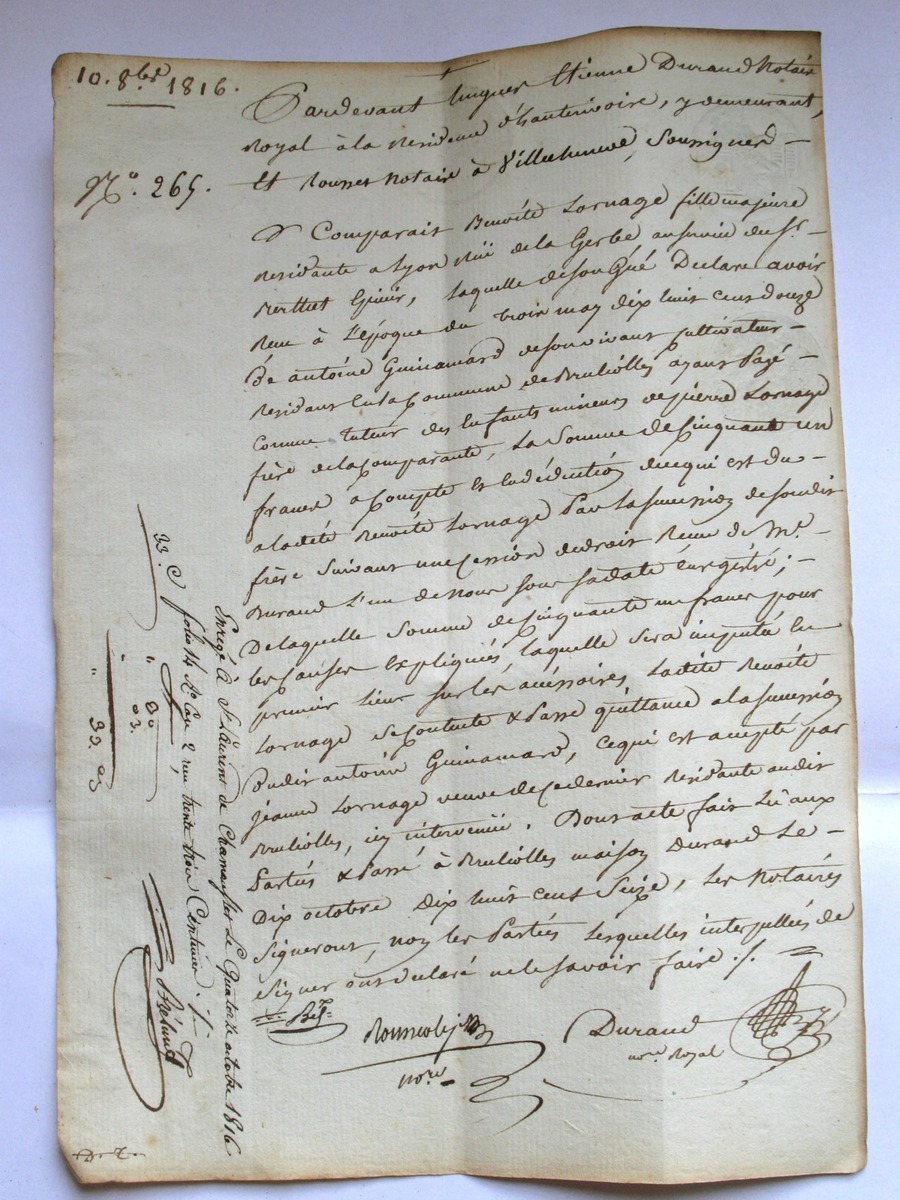 10. 8bre 1816.
N°. 265.
Pardevant hugues Etienne Durand Notaire
Royal à la Residence d'hauterivoire, y demeurant,
Et Notaire à Villecheneve, Soussignés
Comparait Benoîte Lornage fille majeure
residante a Lyon Rüe de la Gerbe au service du Sr.
laquelle de son Gré Declare avoir
Reçu à L'époque du trois may dix huit cent douze
De antoine Guinamard de son vivant Cultivateur
Residant en la Commune de Brulioles ayant Payé
comme tuteur des Enfants mineurs de pierre Lornage
frère de la Comparante, La Somme de Cinquante un
francs à Compte et en déduction de ce qui est du
a ladite Benoîte Lornage Par la Succession de son dit
frère Suivant une Cession de droit Reçue de Me.
Durand L'un de nous sous sa date énrégistré;
De laquelle Somme de Cinquante un francs pour
les Causes Expliquées, laquelle sera imputée en
premier Lieu sur les accéssoires, Ladite Benoîte
Lornage Se Contente & Passe quittance a la Succession
Dudit antoine Guinamard, ce qui est accepté par
jeanne Lornage veuve de ce dernier residante audit
Brulioles, icy intervenüe. Dont acte fait Lu aux
Parties & Passé à Brulioles maison Durand Le
Dix octobre Dix huit cent Seize, Les Notaires
Signeront, non les Parties Lesquelles interpellées de
Signer ont declaré ne le Savoir faire ./.
Durand
nore. Royal
nore
Enregé à St Laurent de Chamousset Le Quatorze octobre 1816
folio 14 Ro. Case 2 reçu trente trois Centimes ./.
33. C
" 30
" 03.
" 33. C
D. T.